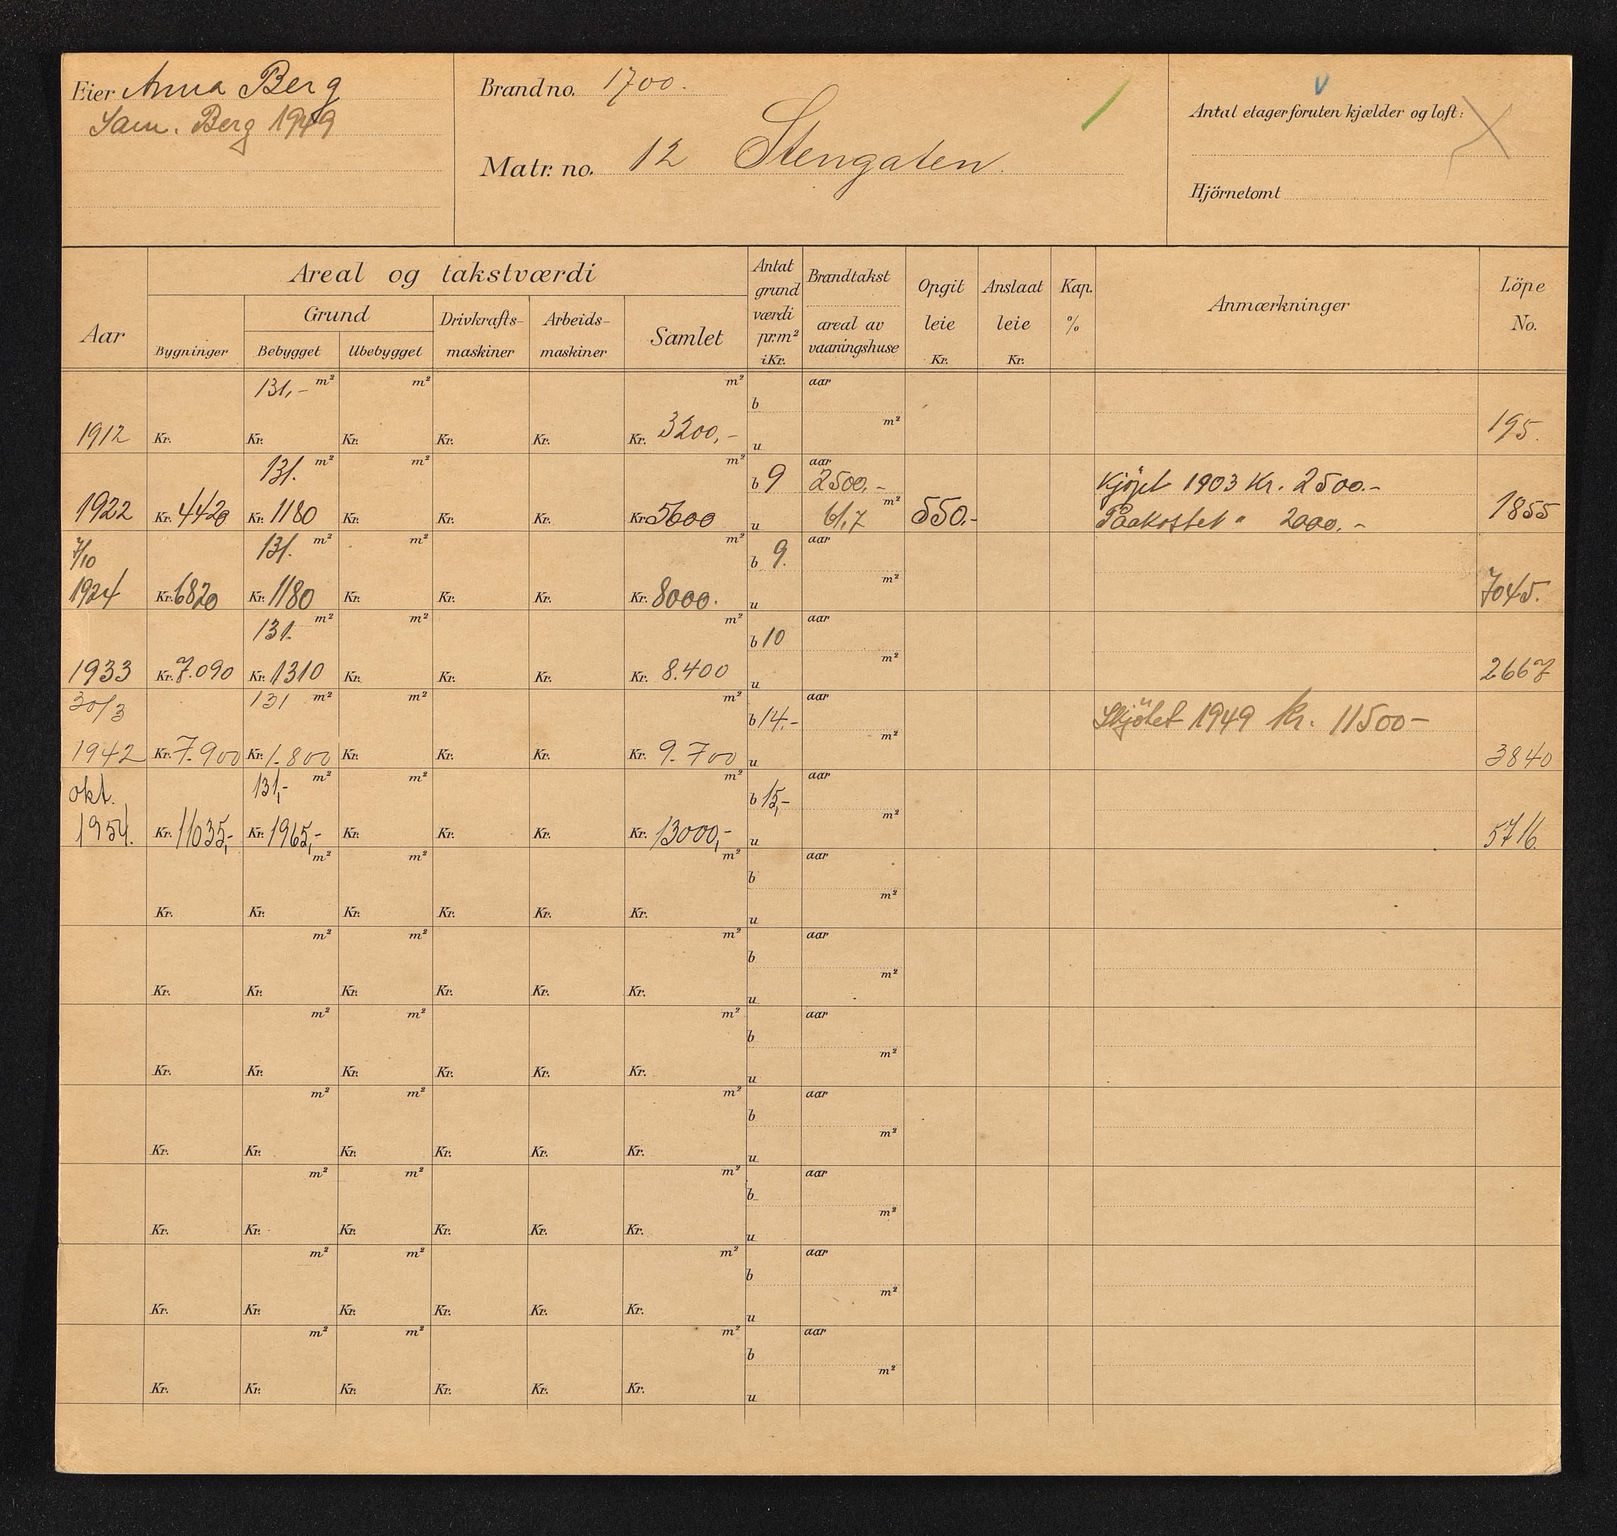 Eier Anna Berg
Sam. Berg 1949
Brandno. 1700.
Matr. no. 12 Stengaten
Antal etager foruten kjælder og loft:
Hjörnetomt
Areal og takstværdi
Aar
Bygninger
Grund
Bebygget
Ubebygget
Drivkrafts-maskiner
Arbeids-maskiner
Samlet
Antat grund værdi pr. m² i Kr.
Brandtakst
areal av vaaningshuse
Opgit leie Kr.
Anslaat leie Kr.
Kap. %
Anmærkninger
Löpe No.
131,- m² m² m² aar
b
m²
1912 Kr. Kr. Kr. Kr. Kr. Kr. 3200,- u 195.
131. m² m² m² b 9 aar 2500.- Kjöpt 1903 Kr. 2500.-
1922 Kr. 4420 Kr. 1180 Kr. Kr. Kr. Kr. 5600 u 61,7 m² 550.- Paakostet " 2000.- 1855
7/10 131. m² m² m² b 9. aar
m²
1924 Kr. 6820 Kr. 1180 Kr. Kr. Kr. Kr. 8000. u 7045.
131. m² m² m² b 10 aar
m²
1933 Kr. 7.090 Kr. 1310 Kr. Kr. Kr. Kr. 8.400 u 2667
30/3 131 m² m² m² b 14.- aar Skjötet 1949 kr. 11500-
m²
1942 Kr. 7.900 Kr. 1.800 Kr. Kr. Kr. Kr. 9.700 u 3840
okt. 131,- m² m² m² b 15,- aar
m²
1954. Kr. 11035,- Kr. 1965,- Kr. Kr. Kr. Kr. 13000,- u 5716.
m² m² m² aar
b
m²
Kr. Kr. Kr. Kr. Kr. Kr. u
m² m² m² aar
b
m²
Kr. Kr. Kr. Kr. Kr. Kr. u
m² m² m² aar
b
m²
Kr. Kr. Kr. Kr. Kr. Kr. u
m² m² m² aar
b
m²
Kr. Kr. Kr. Kr. Kr. Kr. u
m² m² m² aar
b
m²
Kr. Kr. Kr. Kr. Kr. Kr. u
m² m² m² aar
b
m²
Kr. Kr. Kr. Kr. Kr. Kr. u
m² m² m² aar
b
m²
Kr. Kr. Kr. Kr. Kr. Kr. u